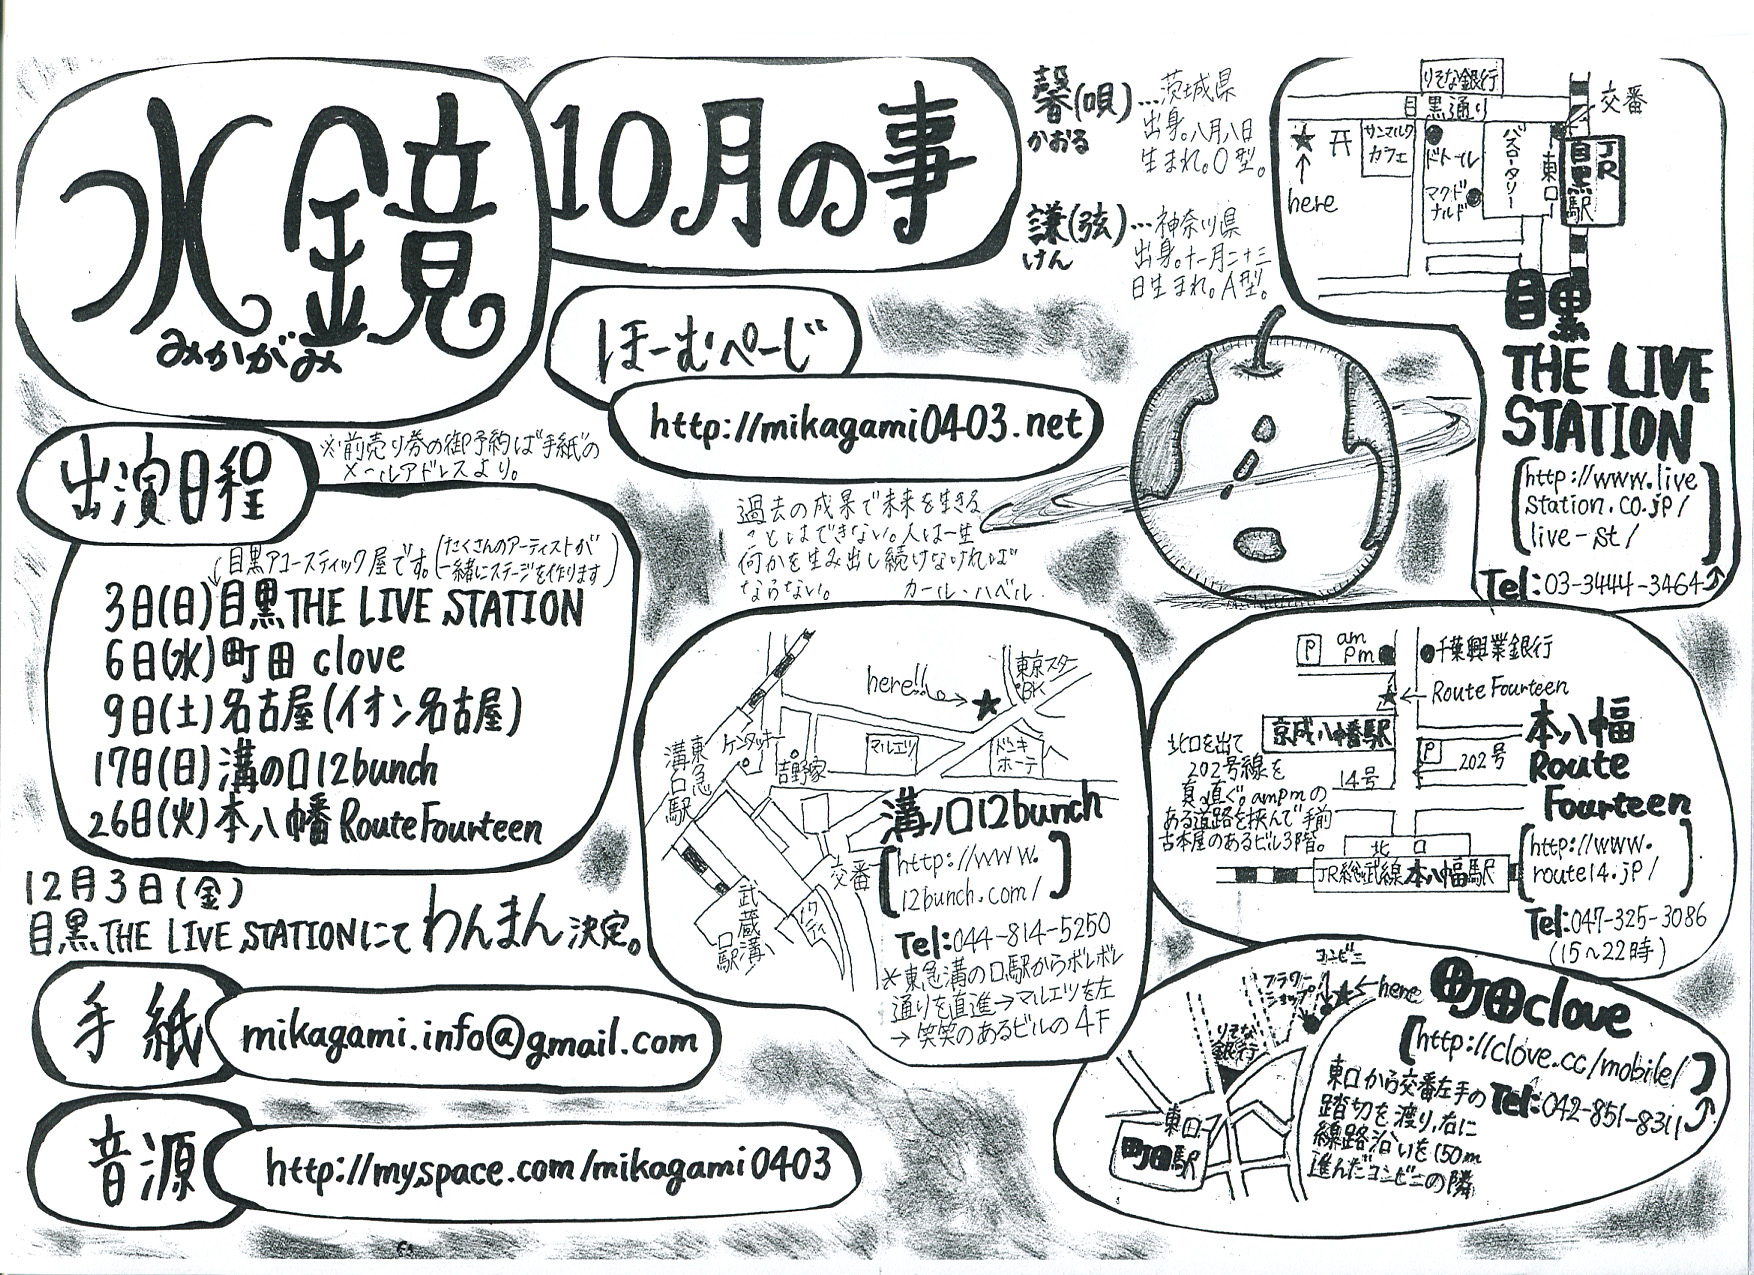 水鏡
みかがみ
10月の事
馨(唄)…茨城県
かおる
出身。八月八日
生まれ。O型。
謙(弦)…神奈川県
けん
出身。十一月二十三
日生まれ。A型。
ほーむぺーじ
http://mikagami0403.net
出演日程
※前売り券の御予約は"手紙"の
メールアドレスより。
目黒アコースティック屋です。(たくさんのアーティストが
一緒にステージを作ります)
3日(日)目黒THE LIVE STATION
6日(水)町田 clove
9日(土)名古屋(イオン名古屋)
17日(日)溝の口12bunch
26日(火)本八幡 Route Fourteen
12月3日(金)
目黒THE LIVE STATIONにて わんまん 決定。
手紙
mikagami.info@gmail.com
音源
http://myspace.com/mikagami0403
過去の成果で未来を生きる
ことはできない。人は一生
何かを生み出し続けなければ
ならない。 カール・ハベル.
りそな銀行
目黒通り
交番
サンマルク
カフェ
ドトール
マクド
ナルド
バスロータリー
東口
JR
目黒駅
here
目黒
THE LIVE
STATION
[http://www.live
station.co.jp/
live-st/]
Tel:03-3444-3464
here!!
東京スター
BK
東急
溝の口駅
ケンタッキー
吉野家
マルエツ
ドンキ
ホーテ
交番
武蔵溝
口駅
溝ノ口12bunch
[http://www.
12bunch.com/]
Tel:044-814-5250
※東急溝の口駅からポレポレ
通りを直進→マルエツを左
→笑笑のあるビルの4F
P
am
pm
千葉興業銀行
Route Fourteen
京成八幡駅
P
202号
14号
北口を出て
202号線を
真直ぐ。ampmの
ある道路を挟んで手前
古本屋のあるビル3階。
北口
JR総武線 本八幡駅
本八幡
Route
Fourteen
[http://www.
route14.jp/]
Tel:047-325-3086
(15〜22時)
コンビニ
フラワー
ショップ
here
りそな
銀行
東口
町田駅
町田clove
[http://clove.cc/mobile/]
Tel:042-851-8311
東口から交番左手の
踏切を渡り、右に
線路沿いを150m
進んだコンビニの隣